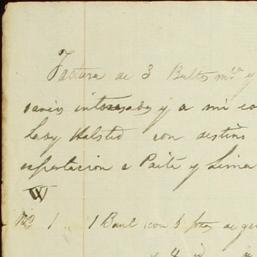 Factura de 3 Bultos mrs. y
varios interesados y a mi co
Laby Halsted con destino
esportacion a Paita y Lima
W
No 2 1 .. 1 Baul con 3 de